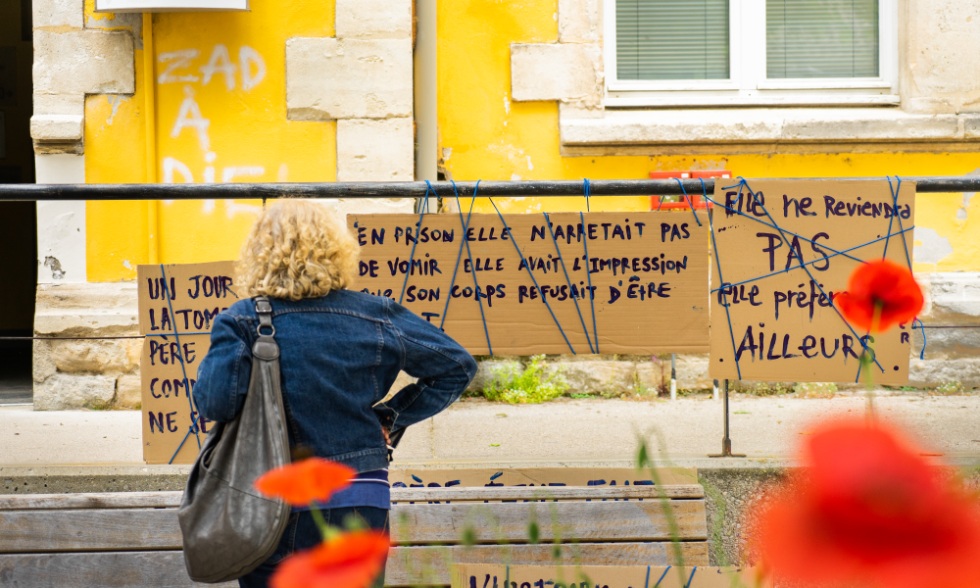 ZAD
À
DIE!
UN JOUR
LA TOM
PÈRE
COM
NE SE
EN PRISON ELLE N'ARRETAIT PAS
DE VOMIR ELLE AVAIT L'IMPRESSION
QUE SON CORPS REFUSAIT D'ÊTRE
Elle ne Reviendra
PAS
elle préfèr
AiLLeURS